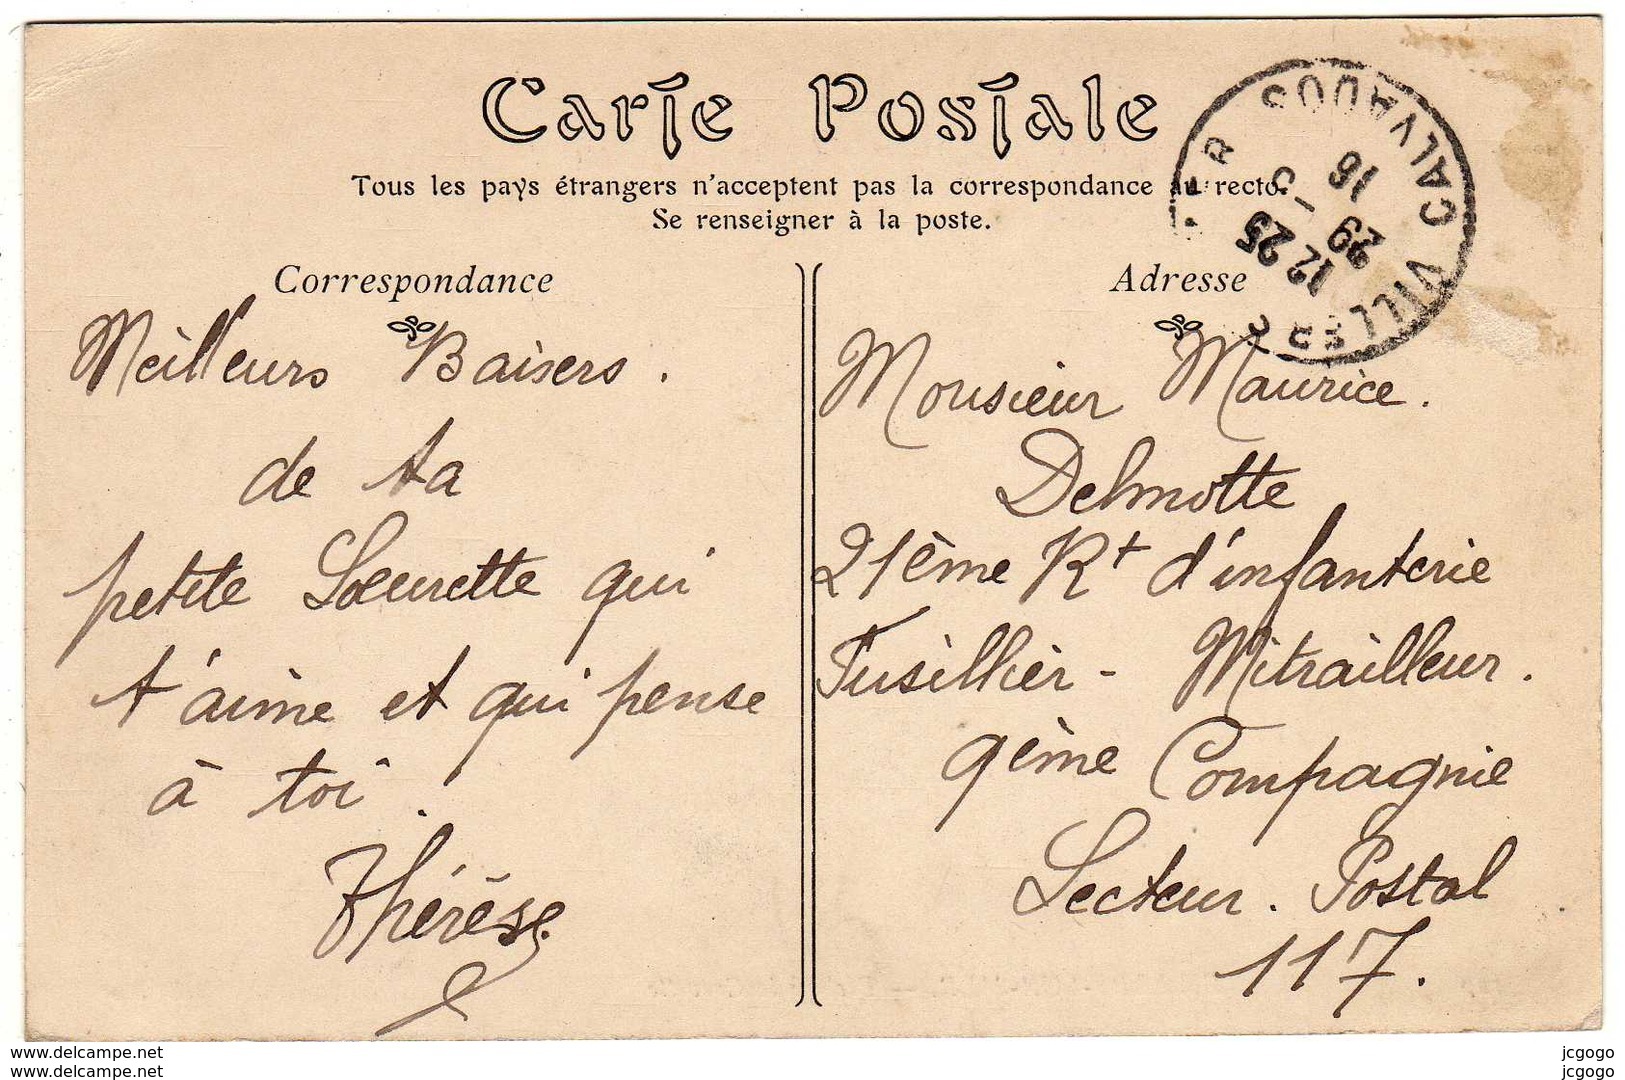 Carte Postale
Tous les pays étrangers n'acceptent pas la correspondance au recto.
Se renseigner à la poste.
Correspondance
Meilleurs Baisers.
de ta
petite Soeurette qui
t'aime et qui pense
à toi.
Thérèse.
Adresse
Monsieur Maurice.
Delmotte
21ème Rt d'infanterie
Fusillier - Mitrailleur.
9ème Compagnie
Secteur. Postal
117.
VILLERS MER CALVADOS
12 25
29 - 5
16
www.delcampe.net
www.delcampe.net
jcgogo
jcgogo